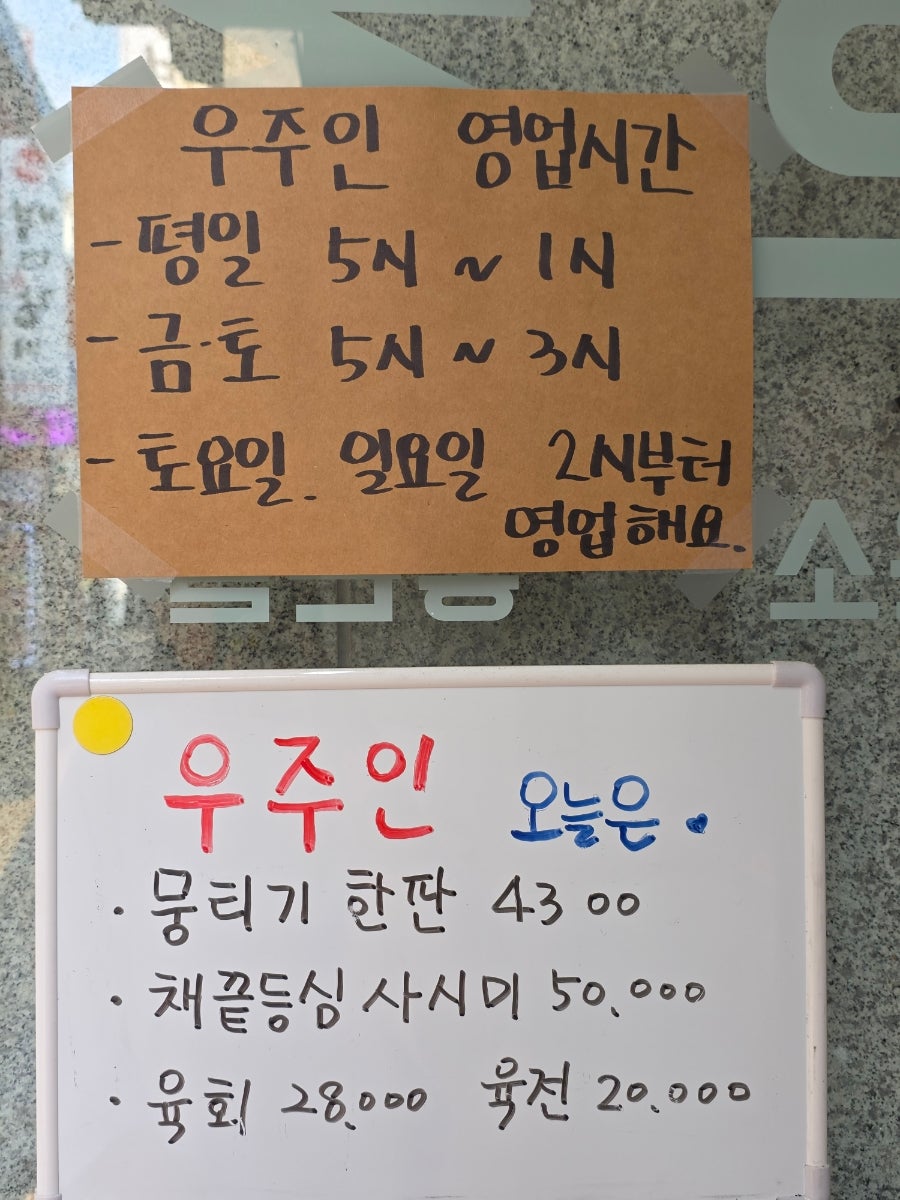 우주인 영업시간
- 평일 5시 ~ 1시
- 금·토 5시 ~ 3시
- 토요일. 일요일 2시부터
영업해요.
우주인 오늘은.
· 뭉티기 한판 4300
· 채끝등심 사시미 50.000
· 육회 28.000 육전 20.000